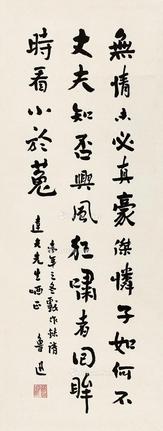 無情未必真豪傑憐子如何不
丈夫知否興風狂嘯者回眸
時看小於菟
未年之冬戲作録請
達夫先生哂正
魯迅